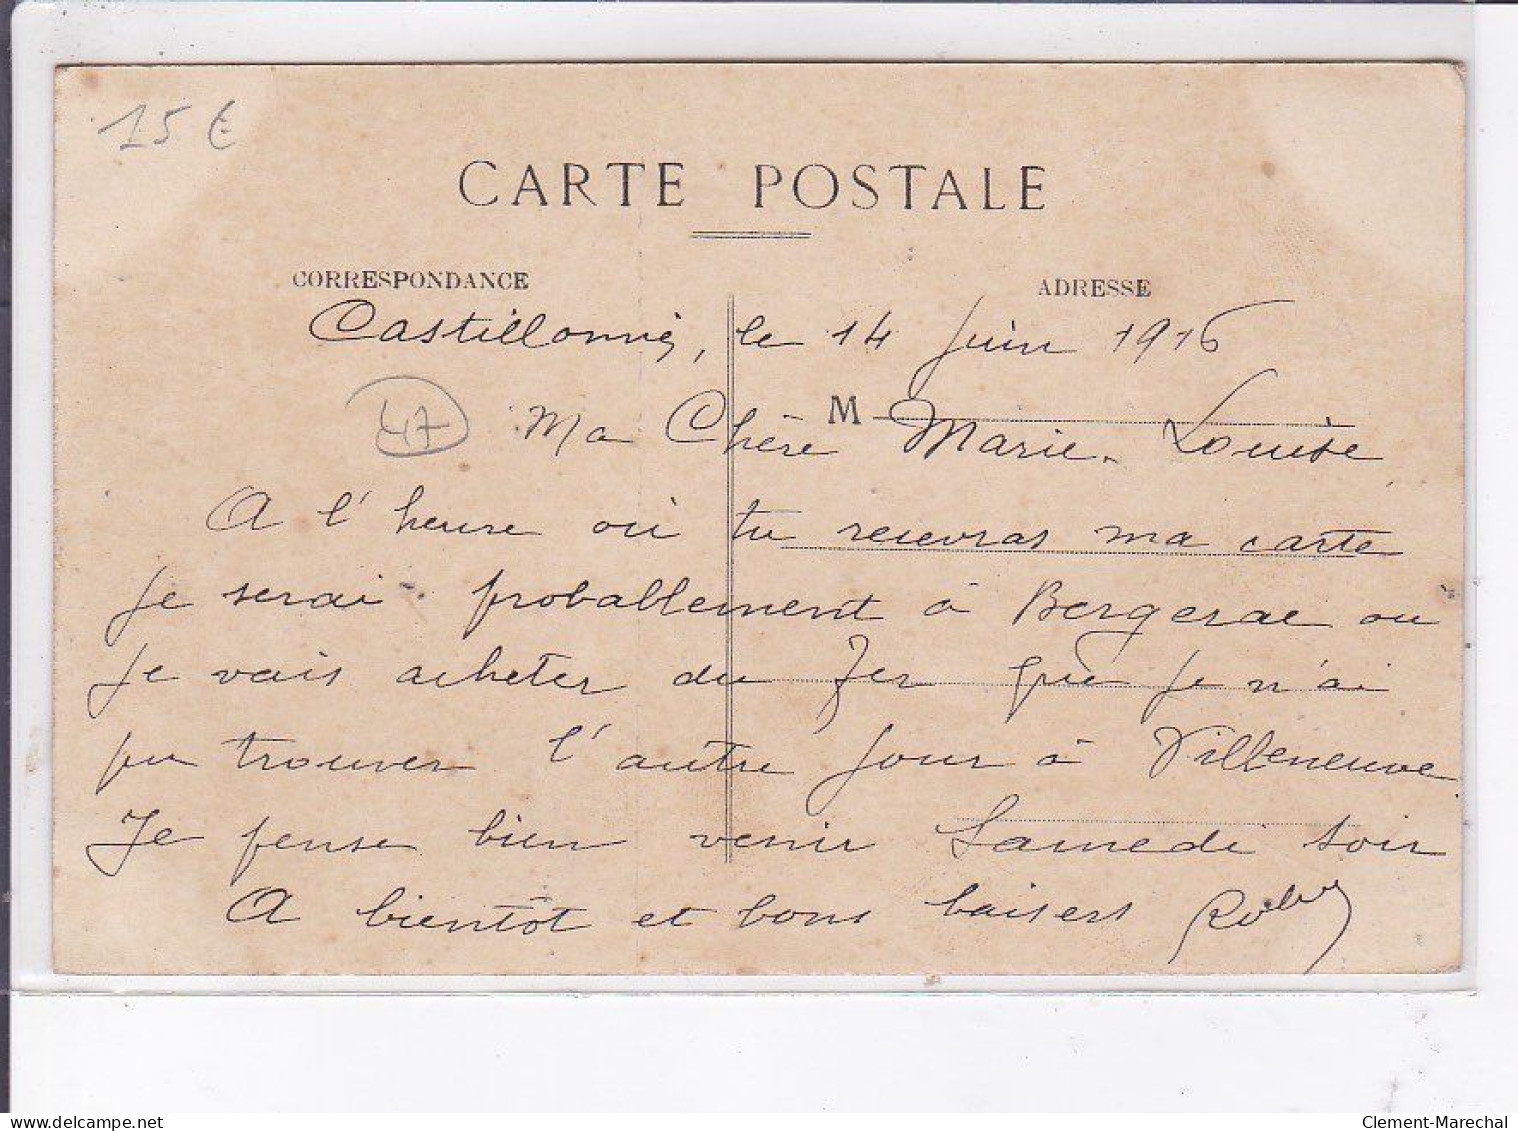 15 €
CARTE POSTALE
CORRESPONDANCE
ADRESSE
Castillonnès, le 14 Juin 1916
47
M
Ma Chère Marie-Louise
A l'heure où tu recevras ma carte
Je serai probablement à Bergerac où
Je vais acheter du fer que Je n'ai
pu trouver l'autre Jour à Villeneuve
Je pense bien venir Samedi soir
A bientôt et bons baisers
delcampe.net
Clement-Marechal